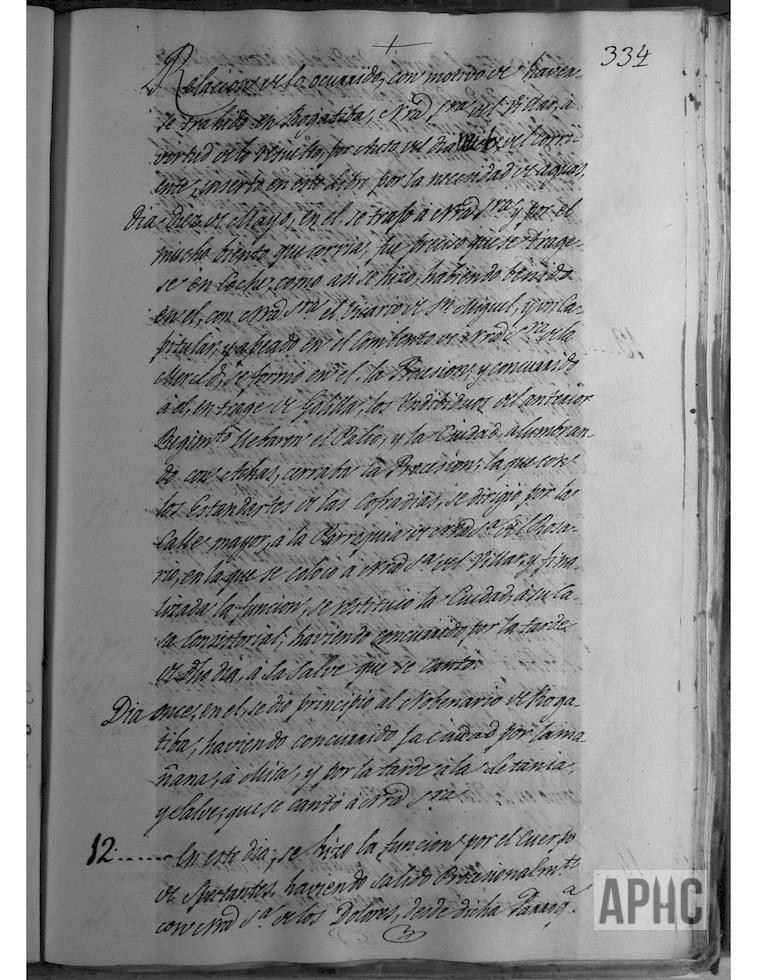 +
334
Relacion de lo ocurrido, con motivo de haver-
se trahido en Rogatiba, Nrã Srã del Pilar, a
vortud de lo resuelto, por Acto del dia del corri-
ente, inserto en este libro, por la necesidad de aguas.
Dia Diez de Mayo, en el, se trajo a Nrã Srã y por el
mucho biento que corria, fue preciso que se trage-
se en Coche, como asi se hizo, habiendo benido
en el, con Nrã Srã el Vicario de Sn Miguel, y un Ca-
pitular, y apeado en el Combento de Nrã Srã de la
Merced, se formo en el, la Procesion, y concurrido
a el, en trage de Golilla, los Yndibiduos del anterior
Regimto llebaron el Palio, y la Ciudad, alumbran-
do con Achas, cerraba la Procesion; la que con
los Estandartes de las Cofradias, se dirigio, por la
Calle mayor, a la Parroquia de Nrã Sã del Rosa-
rio, en la que se coloco a Nrã Sã del Pillar, y fina-
lizada la funcion, se restituio la Ciudad, a su Ca-
sa Consistorial, haviendo concurrido, por la tarde
de dho dia, a la Salve que se canto.
Dia once, en el, se dio principio al Nobenario de Roga-
tiba, haviendo concurrido la ciudad por la ma-
ñana, a Misa, y por la tarde a la Letania,
y Salve, que se canto a Nrã Srã
12...... En este dia, se hizo la funcion por el Cuerpo
de haviendo salido Procesionalmte
con Nrã Sã de los Dolores, desde dicha Parroqã
APHC